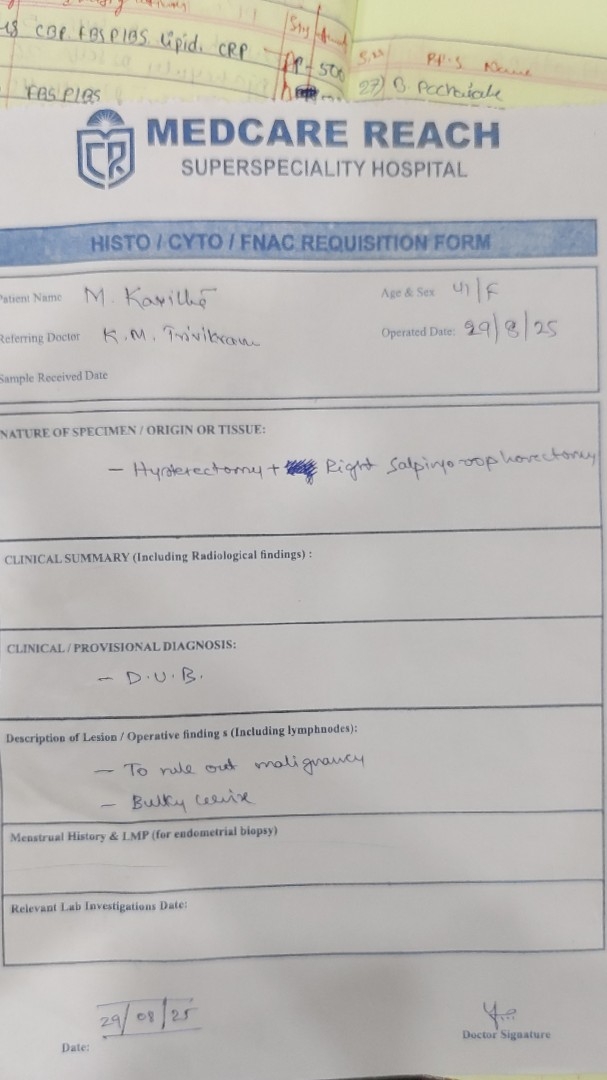 CBP, FBS PlBS, lipid, CRP
PP - 500
S.no Pt's Name
27) B.
FBS PlBS
MEDCARE REACH
SUPERSPECIALITY HOSPITAL
HISTO / CYTO / FNAC REQUISITION FORM
Patient Name M. Age & Sex 41/F
Referring Doctor K.M. Trivikram Operated Date: 29/8/25
Sample Received Date
NATURE OF SPECIMEN / ORIGIN OR TISSUE:
- Hysterectomy + Right Salpingo oophorectomy
CLINICAL SUMMARY (Including Radiological findings) :
CLINICAL / PROVISIONAL DIAGNOSIS:
- D.U.B.
Description of Lesion / Operative finding s (Including lymphnodes):
- To rule out malignancy
- Bulky cervix
Menstrual History & LMP (for endometrial biopsy)
Relevant Lab Investigations Date:
29/08/25
Date:
Doctor Signature